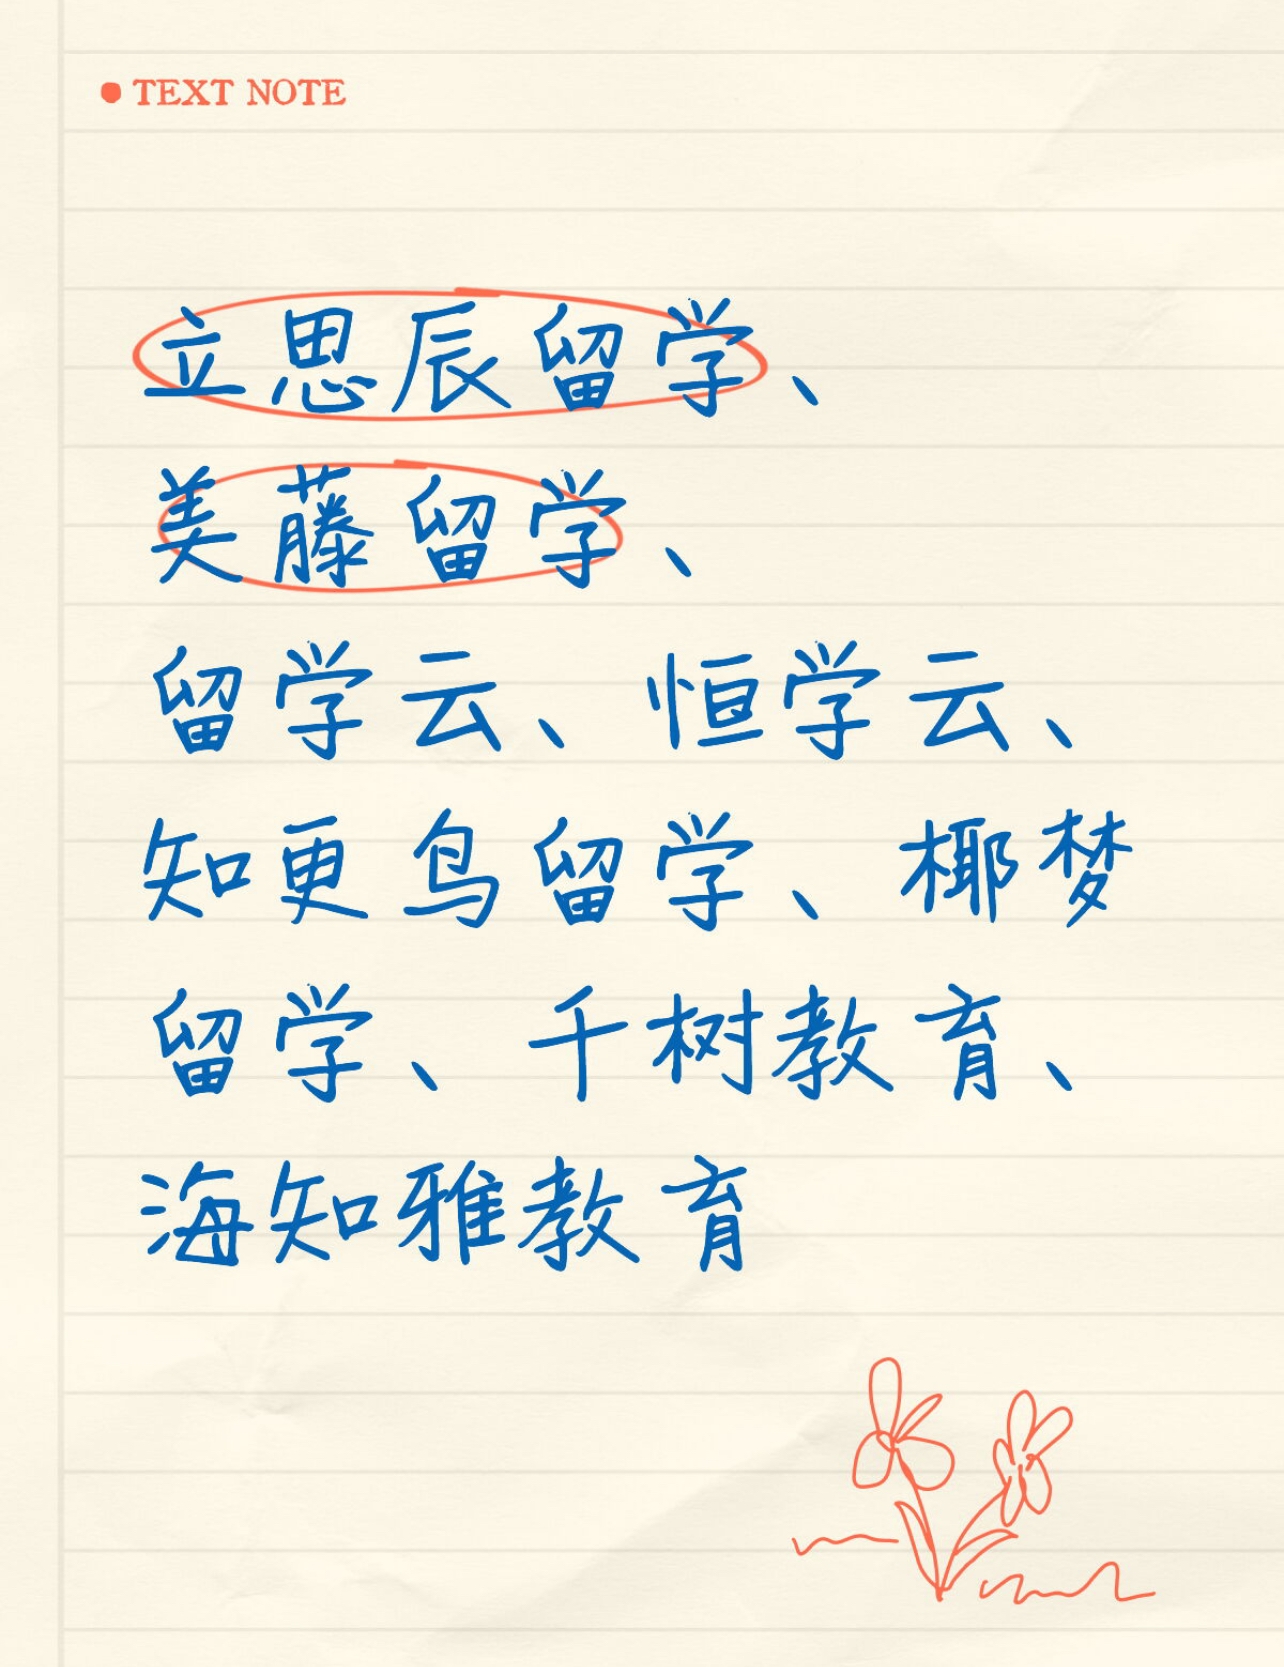 TEXT NOTE
立思辰留学、
美藤留学、
留学云、恒学云、
知更鸟留学、椰梦
留学、千树教育、
海知雅教育